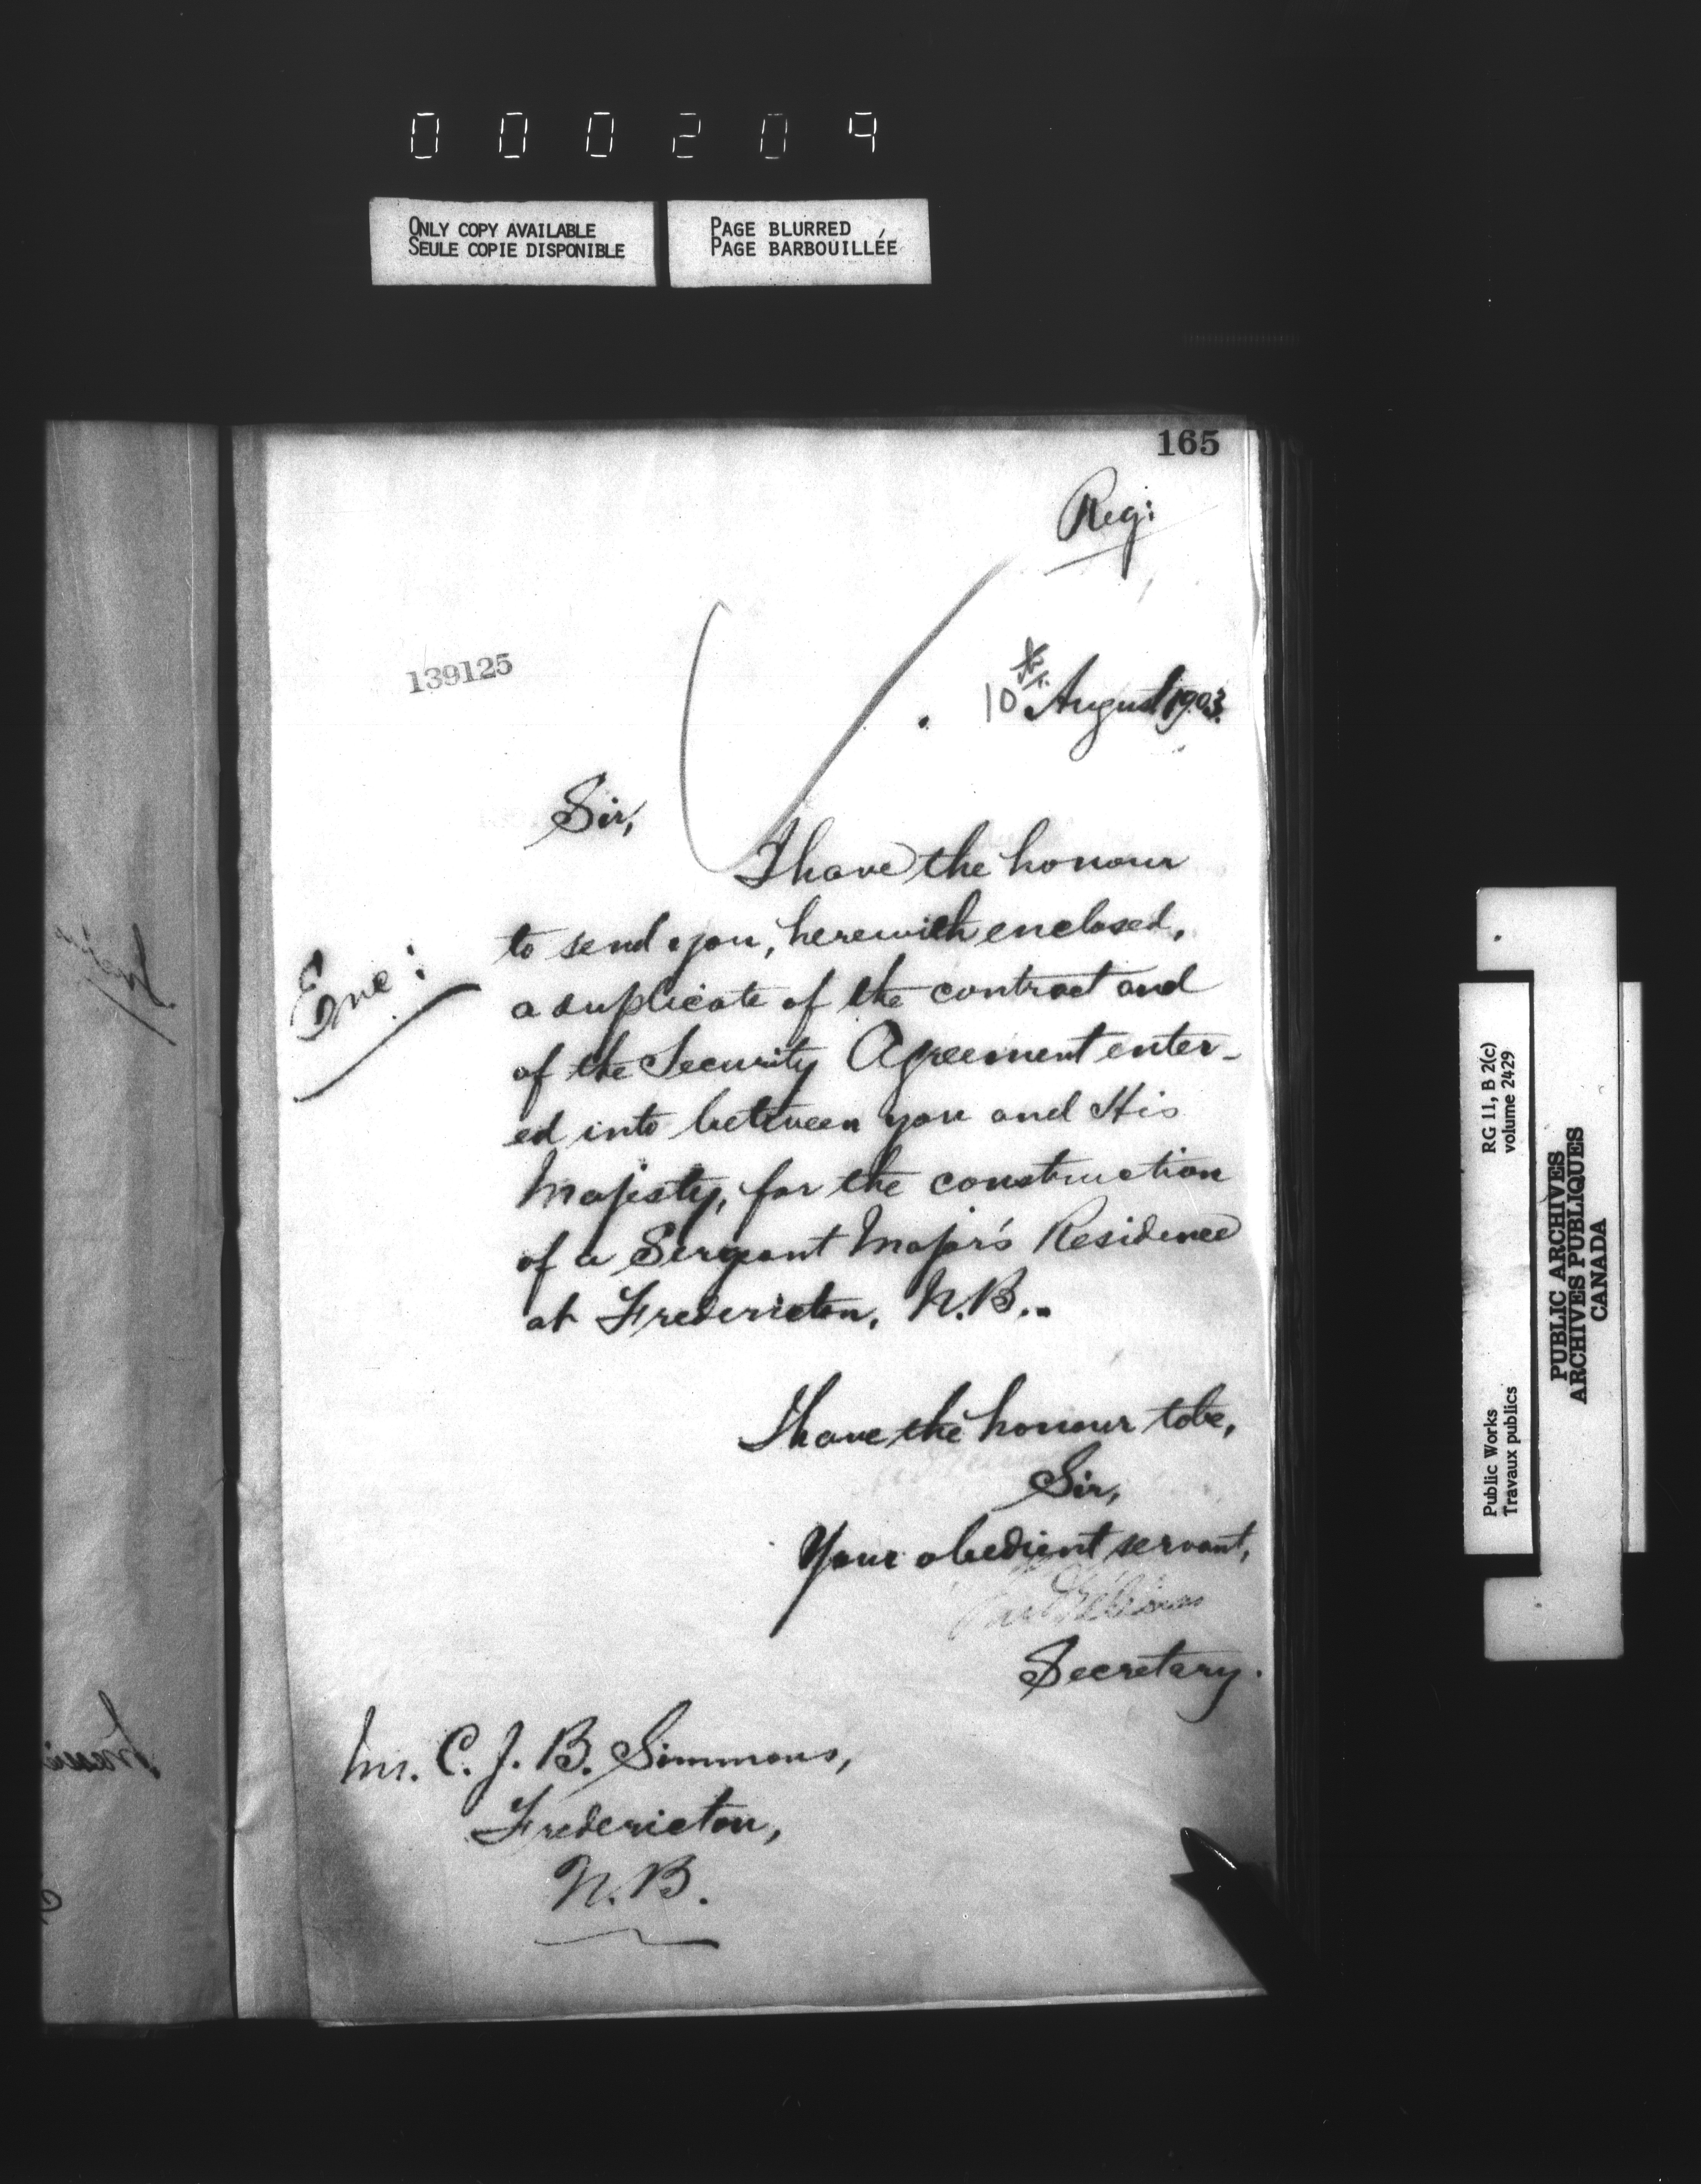 000209
ONLY COPY AVAILABLE
SEULE COPIE DISPONIBLE
PAGE BLURRED
PAGE BARBOUILLÉE
165
Reg:
139125
10th August 1903.
Sir,
I have the honour
to send you, herewith enclosed,
Enc:
a duplicate of the contract and
of the Security Agreement enter-
ed into between you and His
Majesty, for the construction
of a Sergeant Major's Residence
at Fredericton, N.B..
I have the honour to be,
Sir,
Your obedient servant,
Secretary.
Mr. C. J. B. Simmons,
Fredericton,
N.B.
Public Works
Travaux publics
RG 11, B 2(c)
volume 2429
PUBLIC ARCHIVES
ARCHIVES PUBLIQUES
CANADA